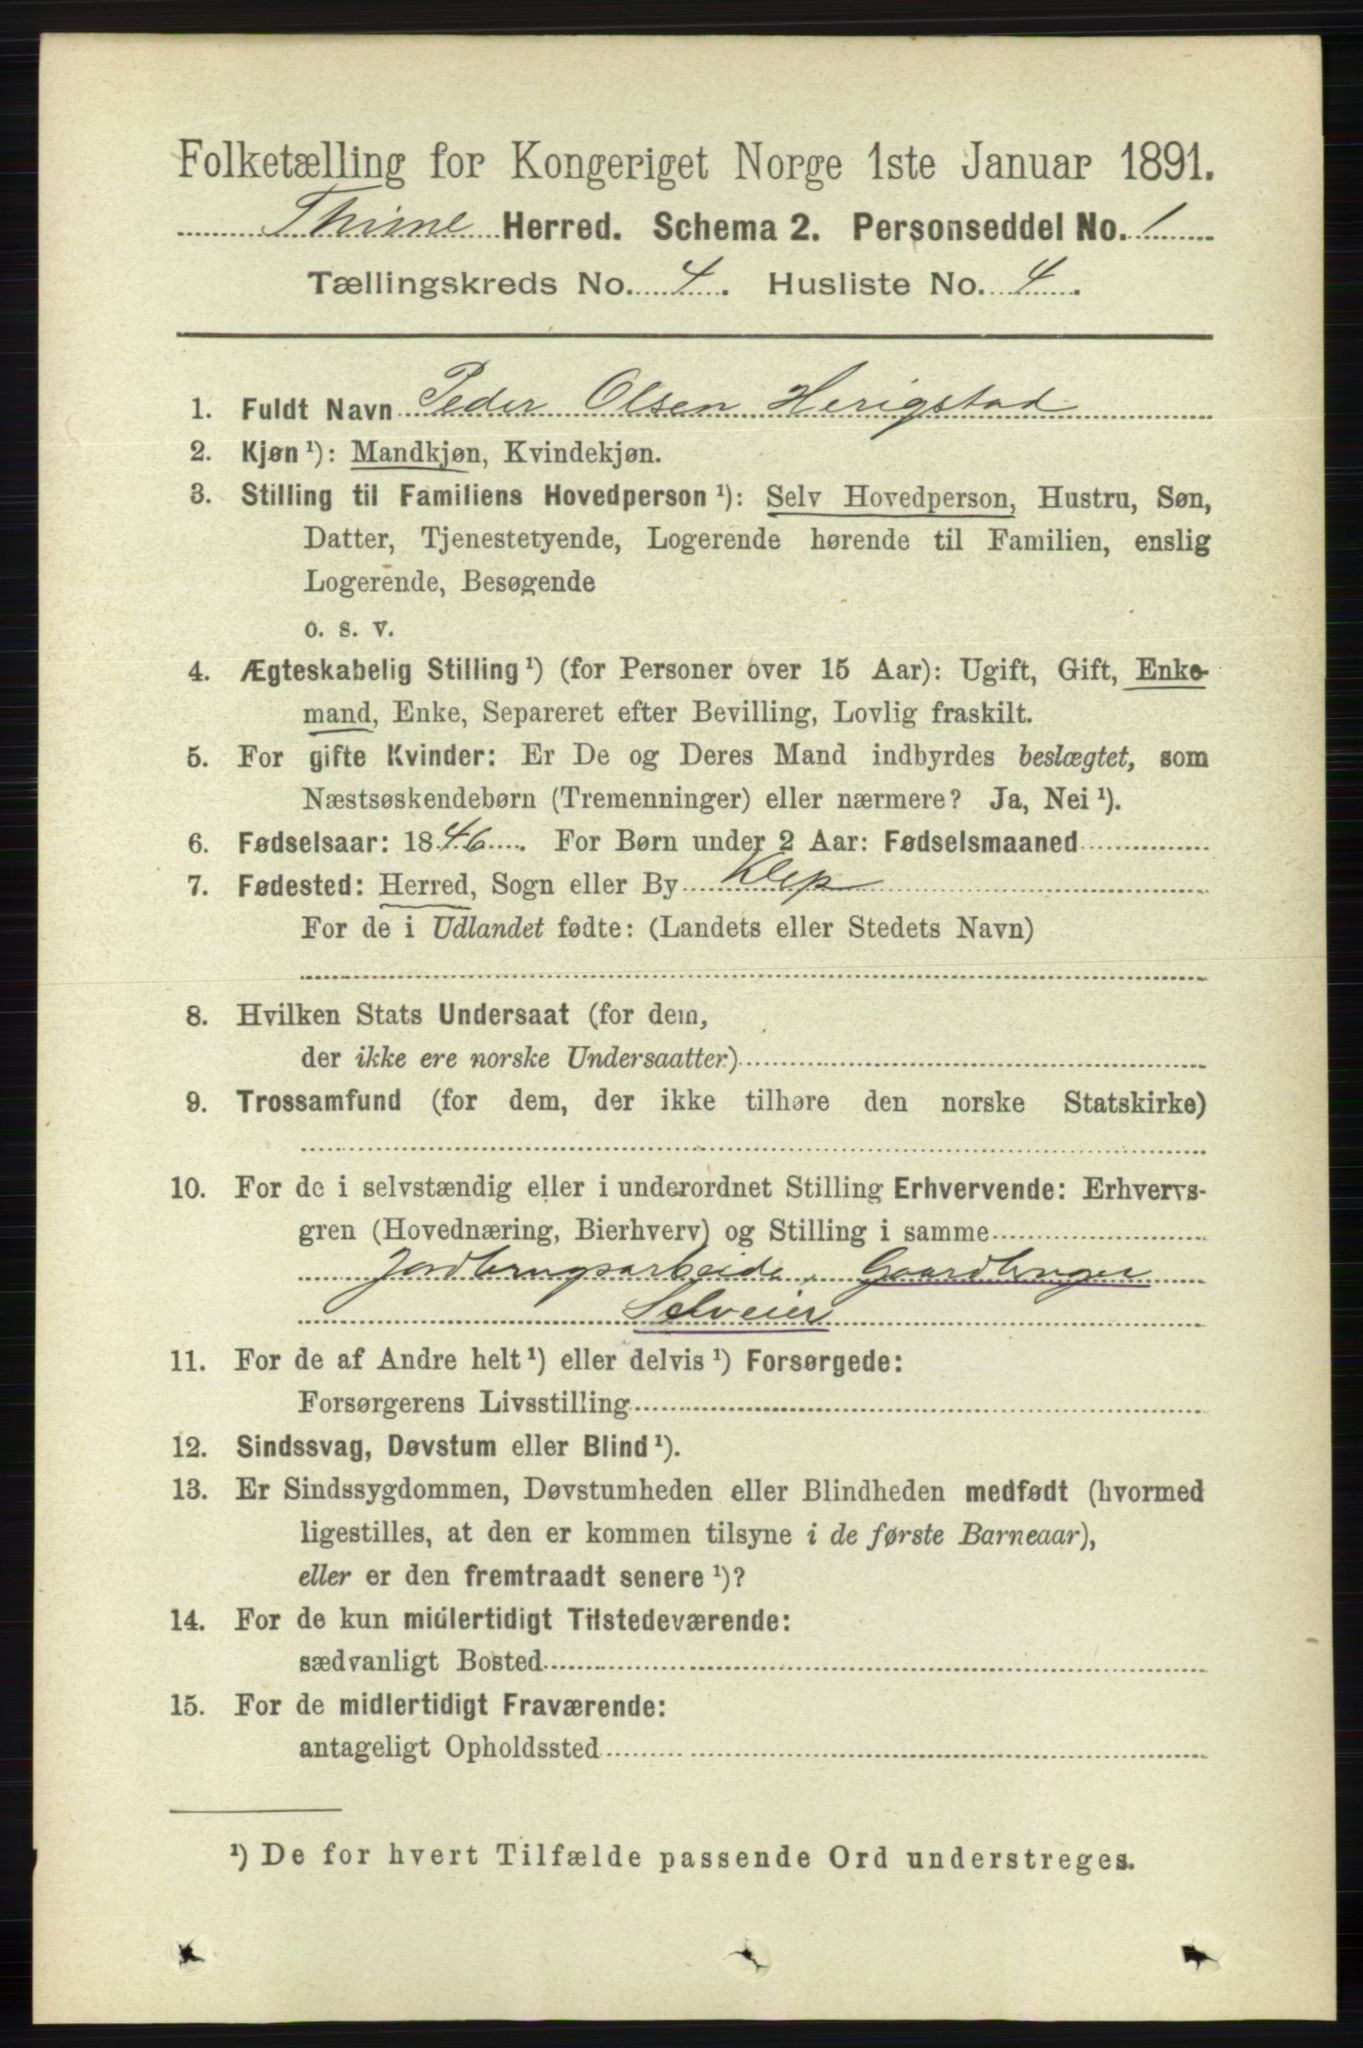 Folketælling for Kongeriget Norge 1ste Januar 1891.
Thime Herred. Schema 2. Personseddel No. 1
Tællingskreds No. 4. Husliste No. 4.
1. Fuldt Navn Peder Olsen Herigstad
2. Kjøn ¹): Mandkjøn, Kvindekjøn.
3. Stilling til Familiens Hovedperson ¹): Selv Hovedperson, Hustru, Søn,
Datter, Tjenestetyende, Logerende hørende til Familien, enslig
Logerende, Besøgende
o. s. v.
4. Ægteskabelig Stilling ¹) (for Personer over 15 Aar): Ugift, Gift, Enke-
mand, Enke, Separeret efter Bevilling, Lovlig fraskilt.
5. For gifte Kvinder: Er De og Deres Mand indbyrdes beslægtet, som
Næstsøskendebørn (Tremenninger) eller nærmere? Ja, Nei ¹).
6. Fødselsaar: 1846. For Børn under 2 Aar: Fødselsmaaned
7. Fødested: Herred, Sogn eller By Klep
For de i Udlandet fødte: (Landets eller Stedets Navn)
8. Hvilken Stats Undersaat (for dem,
der ikke ere norske Undersaatter)
9. Trossamfund (for dem, der ikke tilhøre den norske Statskirke)
10. For de i selvstændig eller i underordnet Stilling Erhvervende: Erhvervs-
gren (Hovednæring, Bierhverv) og Stilling i samme
Jordbrugsarbeide, Gaardbruger
Selveier
11. For de af Andre helt ¹) eller delvis ¹) Forsørgede:
Forsørgerens Livsstilling
12. Sindssvag, Døvstum eller Blind ¹).
13. Er Sindssygdommen, Døvstumheden eller Blindheden medfødt (hvormed
ligestilles, at den er kommen tilsyne i de første Barneaar),
eller er den fremtraadt senere ¹)?
14. For de kun midlertidigt Tilstedeværende:
sædvanligt Bosted
15. For de midlertidigt Fraværende:
antageligt Opholdssted
¹) De for hvert Tilfælde passende Ord understreges.